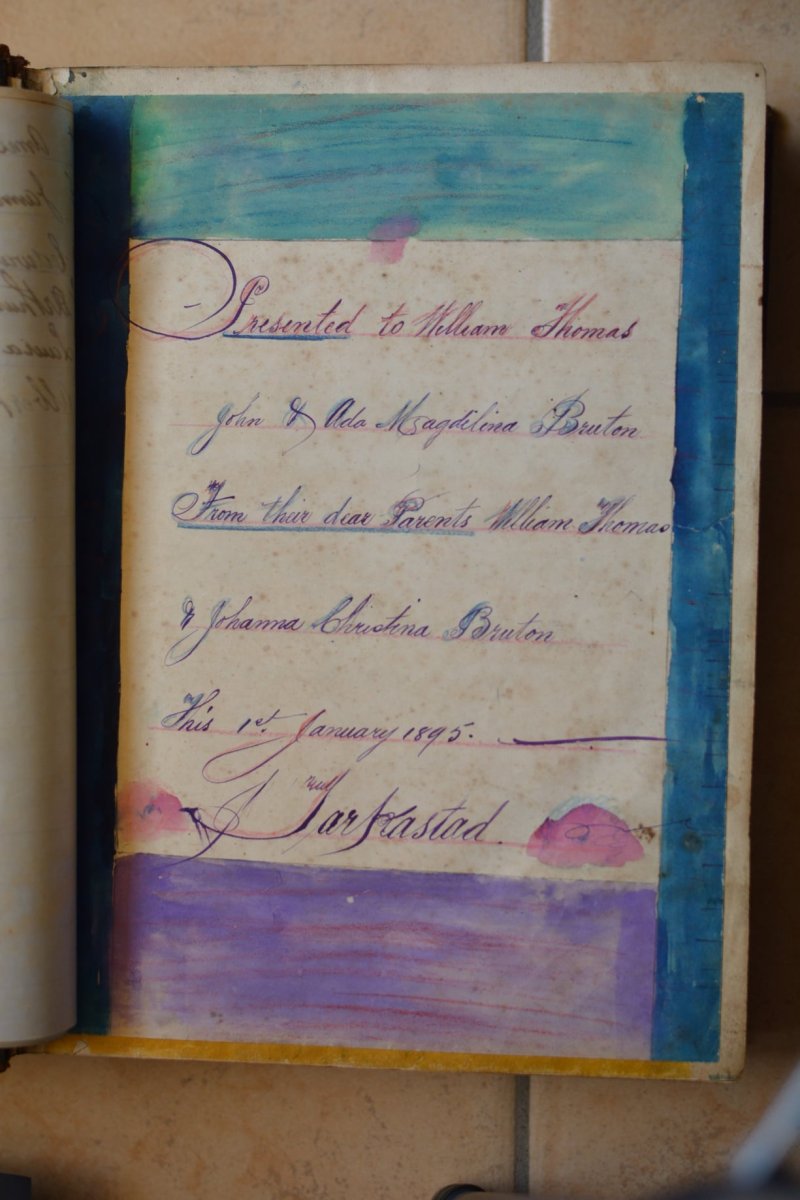 Presented to William Thomas
John & Ada Magdilina Bruton
From their dear Parents William Thomas
& Johanna Christina Bruton
This 1st January 1895.
Tarkastad.